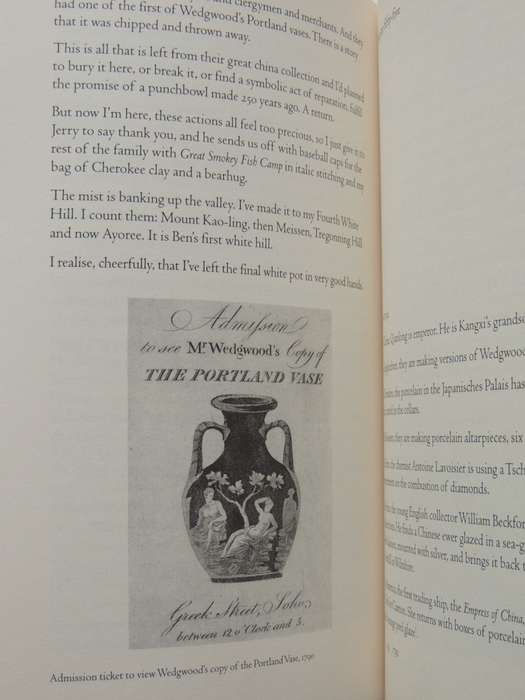 clergymen and merchants. And they
had one of the first of Wedgwood's Portland vases. There is a story
that it was chipped and thrown away.
This is all that is left from their great china collection and I'd planned
to bury it here, or break it, or find a symbolic act of reparation. Fulfil
the promise of a punchbowl made 250 years ago. A return.
But now I'm here, these actions all feel too precious, so I just give it to
Jerry to say thank you, and he sends us off with baseball caps for the
rest of the family with Great Smokey Fish Camp in italic stitching and my
bag of Cherokee clay and a bearhug.
The mist is banking up the valley. I've made it to my Fourth White
Hill. I count them: Mount Kao-ling, then Meissen, Tregonning Hill
and now Ayoree. It is Ben's first white hill.
I realise, cheerfully, that I've left the final white pot in very good hands.
Admission
to see Mr Wedgwood's Copy of
THE PORTLAND VASE
Greek Street, Soho,
between 12 o'Clock and 5.
Admission ticket to view Wedgwood's copy of the Portland Vase, 1790
Qianlong is emperor. He is Kangxi's grandso
they are making versions of Wedgwood
the porcelain in the Japanisches Palais has
in the cellars.
they are making porcelain altarpieces, six
the chemist Antoine Lavoisier is using a Tsch
on the combustion of diamonds.
the young English collector William Beckfor
He finds a Chinese ewer glazed in a sea-g
mounted with silver, and brings it back t
the first trading ship, the Empress of China,
of Canton. She returns with boxes of porcelain